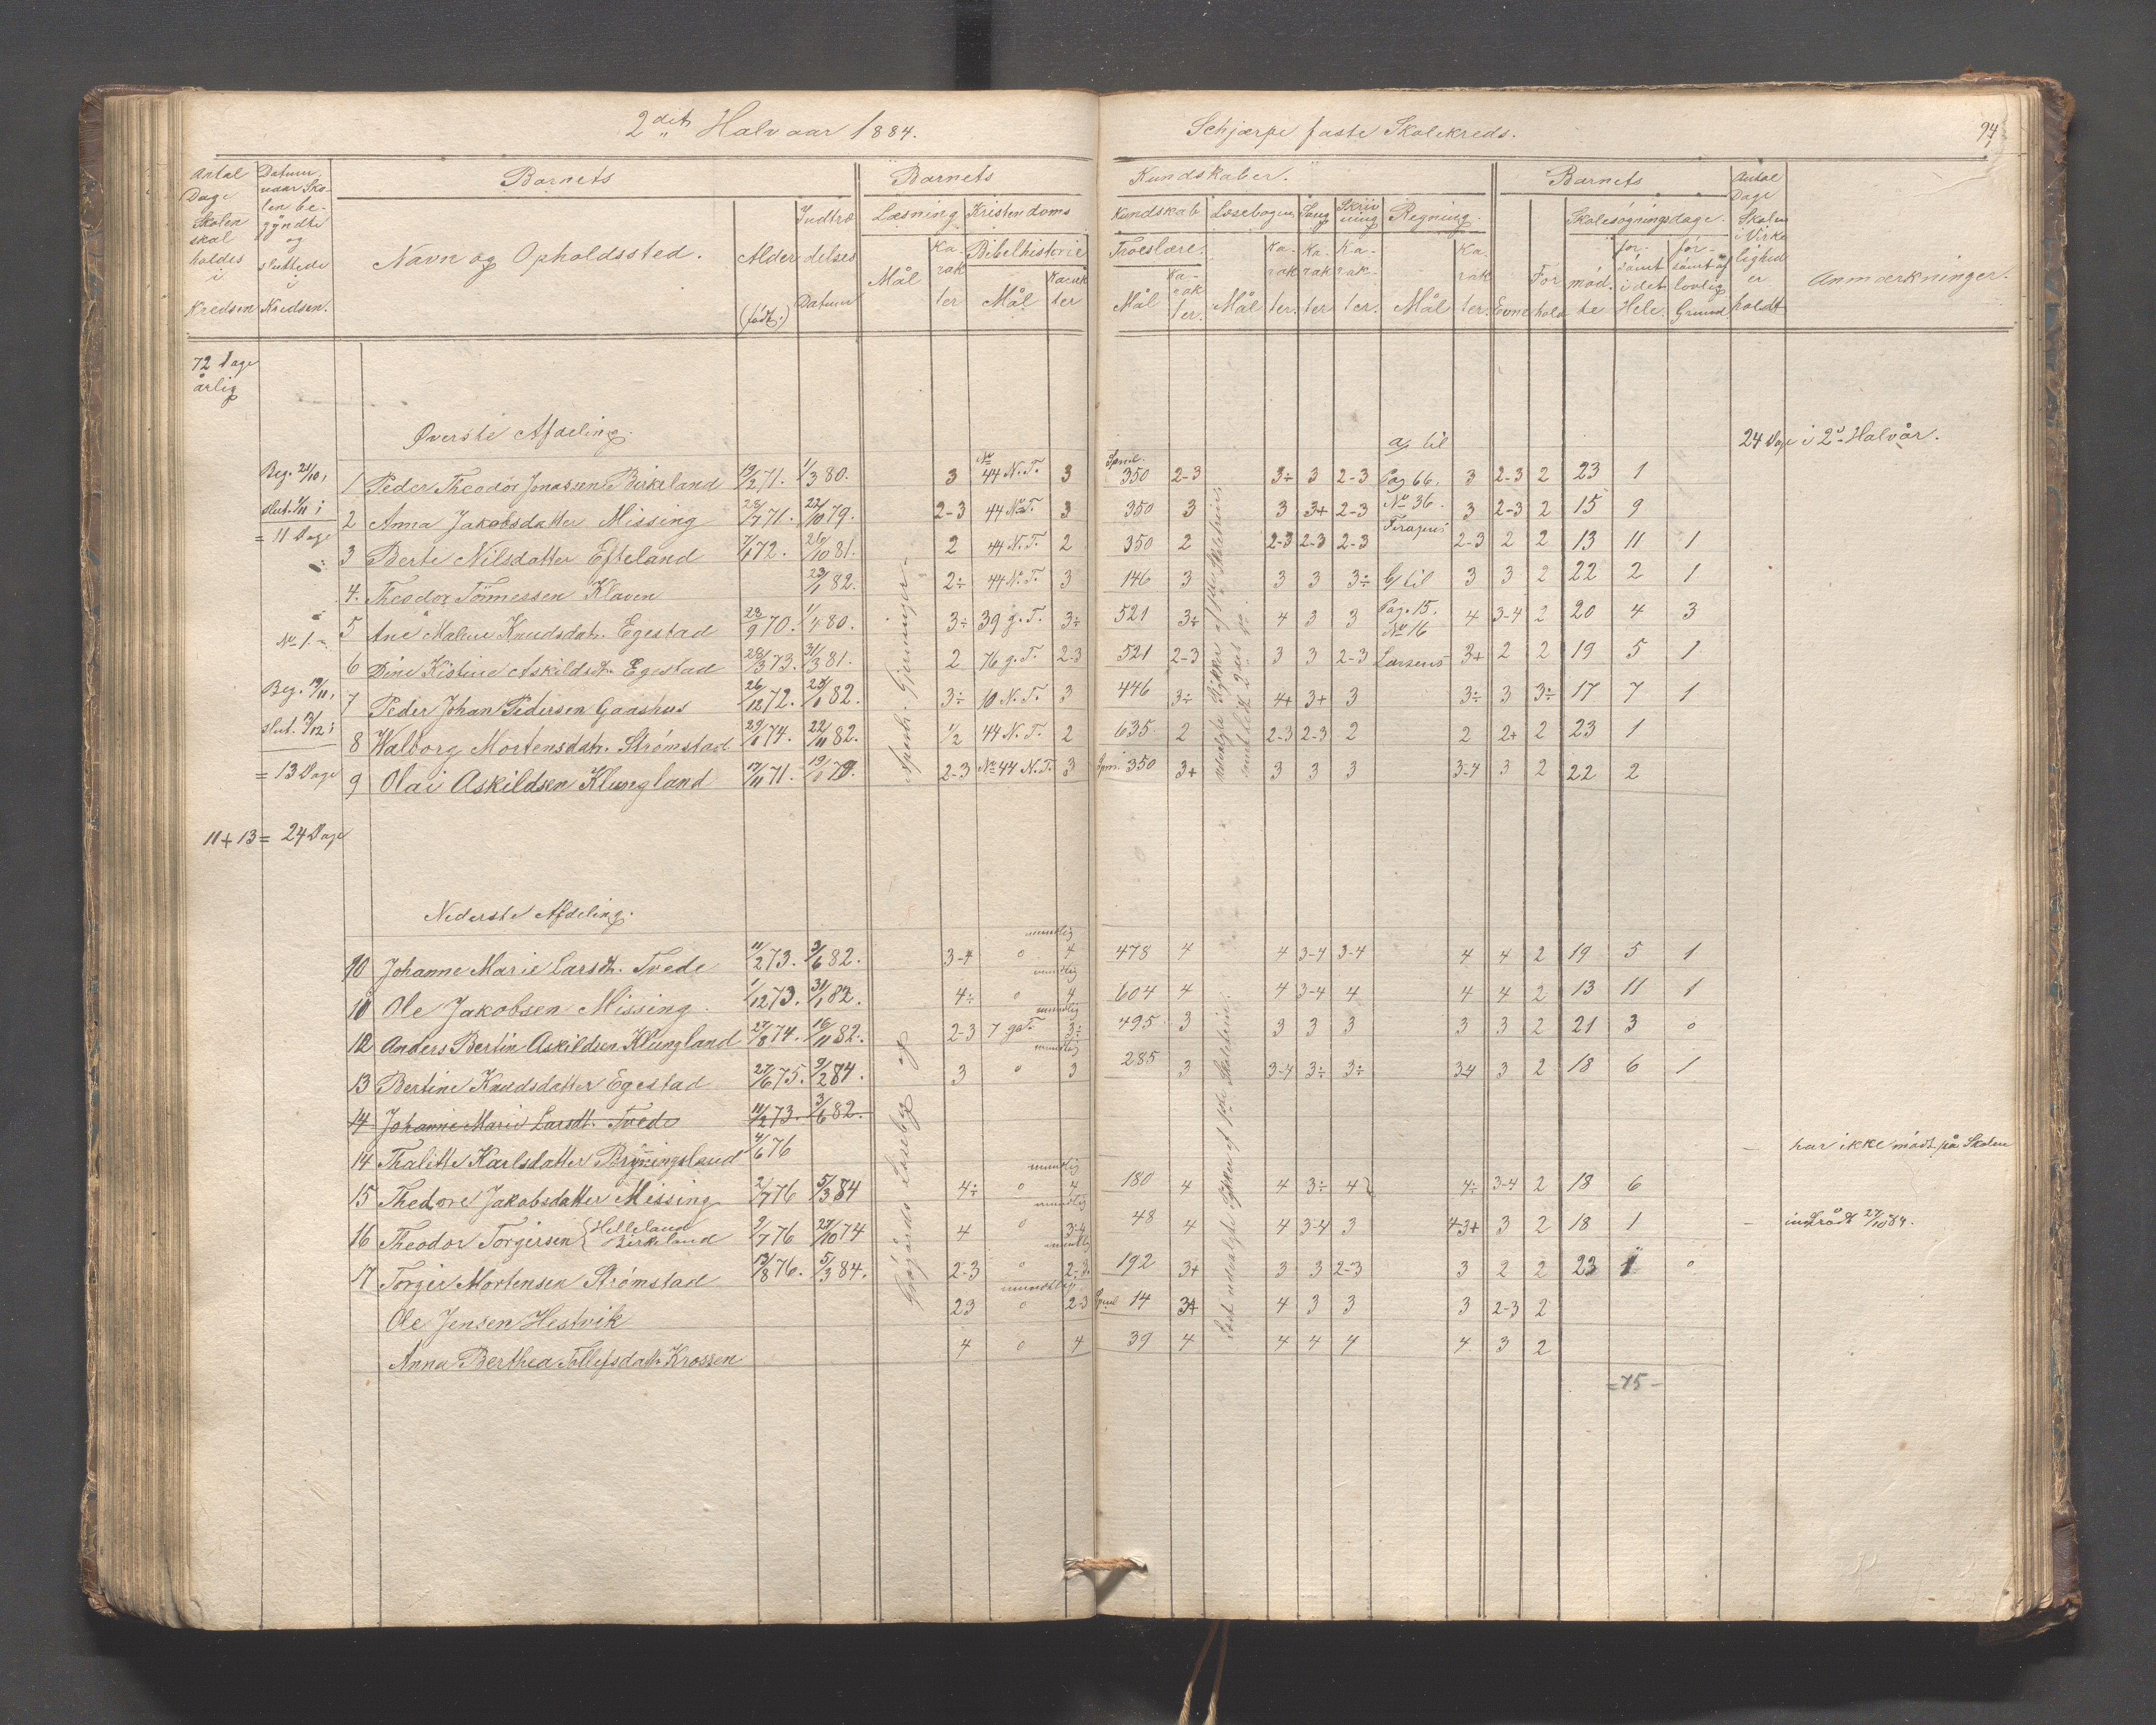 2det Halvaar 1884.
Schjærpe faste Skolekreds.
94
Antal Dage Skolen skal holdes i Kredsen
Datum, naar Skolen begyndte og sluttede i Kredsen.
Barnets
Navn og Opholdssted.
Alder (født.)
Indtrædelses Datum
Barnets
Læsning
Mål
Karakter
Kristendoms
Bibelhistorie
Mål
Karakter
Kundskaber.
Kundskab
Troeslære.
Mål
Karakter.
Læsebogen,
Mål
Karakter.
Sang
Karakter
Skrivning
Karakter.
Regning.
Mål
Karakter.
Barnets
Evne
Forhold
Skolesøgningsdage.
mødte
forsømt i det Hele.
forsømt af lovlig Grund
Antal Dage Skolen i Virkelighed er holdt
Anmærkninger.
72 Dage årlig
Øverste Afdeling.
a, til
24 Dage i 2d Halvår.
Beg. 21/10,
1 Peder Theodor Jonassen Birkeland 19/2 71. 1/3 80. 3 No 44 N.T. 3 Spml. 350 2-3 3÷ 3 2-3 Pag 66. 3 2-3 2 23 1
slut. 1/11;
2 Anna Jakobsdatter Missing 28/7 71. 22/10 79. 2-3 44 N.T. 3 350 3 3 3+ 2-3 No 36. 3 2-3 2 15 9
= 11 Dage
3 Berte Nilsdatter Efteland 7/1 72. 26/10 81. 2 44 N.T. 2 350 2 2-3 2-3 2-3 2-3 2 2 13 11 1
4. Theodor Tønnessen Klaven 23/1 82. 2÷ 44 N.T. 3 146 3 3 3 3÷ b, til 3 3 2 22 2 1
No 1.
5 Ane Malene Knudsdatr. Egestad 22/9 70. 1/4 80. 3÷ 39 g.T. 3÷ 521 3+ 4 3 3 Pag. 15. No 16 4 3-4 2 20 4 3
6 Dine Kistine Askildsdt. Egestad 28/3 73. 31/3 81. 2 76 g.T. 2-3 521 2-3 3 3 2-3 Larsens 3+ 2 2 19 5 1
Beg. 19/11,
7 Peder Johan Pedersen Gaashus 26/12 72. 82. 3÷ 10 N.T. 3 446 3÷ 4+ 3+ 3 3÷ 3 3÷ 17 7 1
slut. 3/12;
8 Walborg Mortensdatr. Strømstad 29/1 74. 22/11 82. 1/2 44 N.T. 2 635 2 2-3 2-3 2 2 2+ 2 23 1
= 13 Dage
9 Olai Askildsen Klungland 17/11 71. 2-3 No 44 N.T. 3 Spm. 350 3+ 3 3 3 3-4 3 2 22 2
11 + 13 = 24 Dage
Nederste Afdeling.
10 Johanne Marie Larsdt. Tvede 11/2 73. 3/6 82. 3-4 o mundtlig 4 478 4 4 3-4 3-4 4 4 2 19 5 1
11 Ole Jakobsen Missing. 1/12 73. 31/1 82. 4÷ o mundtlig 4 604 4 4 3-4 4 4 4 2 13 11 1
12 Anders Bertin Askildsen Klungland 27/8 74. 16/11 82. 2-3 7 g.T. mundtlig 3÷ 495 3 3 3 3 3 3 2 21 3 o
13 Bertine Knudsdatter Egestad 27/6 75. 9/2 84. 3 o mundtlig 3 285 3 3-4 3÷ 3÷ 3-4 3 2 18 6 1
14 Johanne Marie Larsdt. Tvede 11/2 73. 3/6 82.
14 Thalitte Karlsdatter Bryningsland 4/6 76 har ikke mødt på Skolen
15 Thedore Jakobsdatter Missing 2/7 76 5/3 84 4÷ o mundtlig 4 180 4 4 3÷ 4 4÷ 3-4 2 18 6
16 Theodor Torgersen {Helleland Birkeland 9/7 76 27/10 74 4 o mundtlig 3-4 48 4 4 3-4 3 4 3+ 3 2 18 1 indtrådt 27/10 84.
17 Torger Mortensen Strømstad 13/8 76. 5/3 84. 2-3 o mundtlig 2-3. 192 3+ 3 3 2-3 3 2 2 23 1 o
Ole Jensen Hestvik 23 o mundtlig 2-3 Spml 14 3+ 4 3 3 3 2-3 2
Anna Berthea Tollefsdatr. Krossen 4 o 4 39 4 4 4 4 4 3 2
=75-